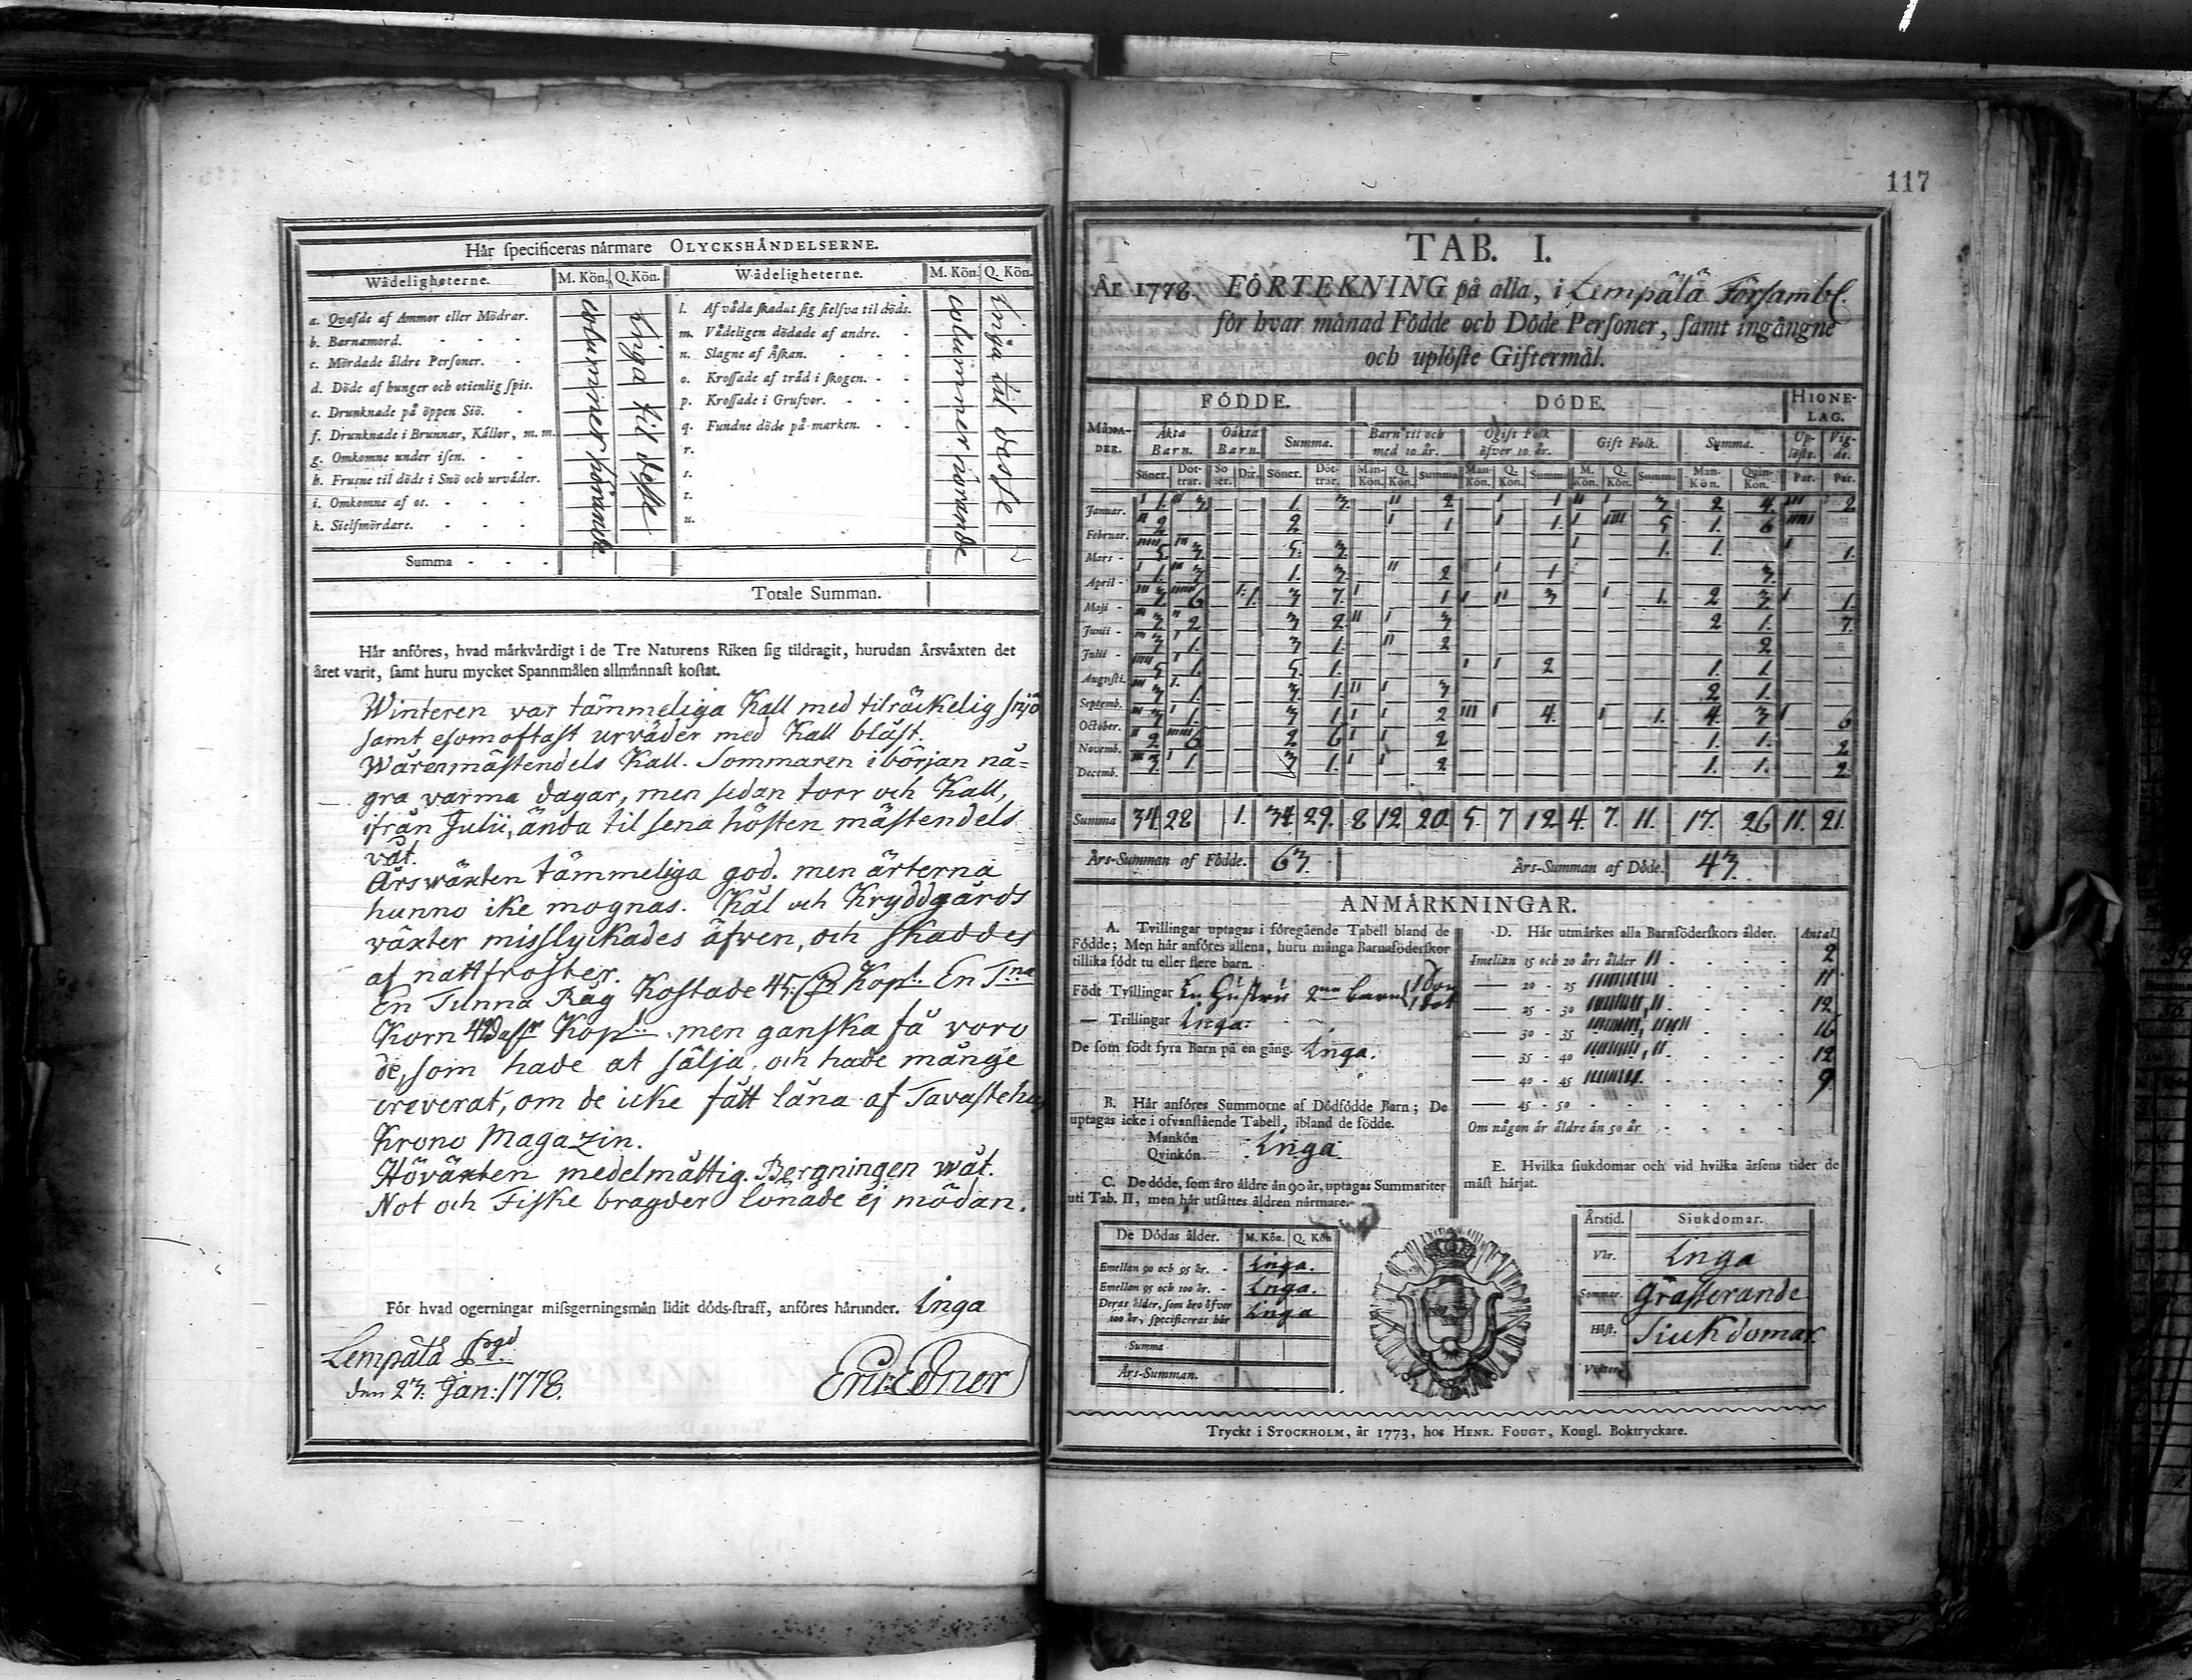 117
Hår specificeras nårmare OLYCKSHÅNDELSERNE.
Wådeligheterne. M. Kön. Q. Kön. Wådeligheterne. M. Kön. Q. Kön.
a. Qvafde af Ammor eller Mödrar.
b. Barnamord.
c. Mördade åldre Personer.
d. Döde af hunger och otienlig spis.
e. Drunknade på öppen Siö.
f. Drunknade i Brunnar, Kållor, m. m.
g. Omkomne under isen.
h. Frusne til döds i Snö och urvåder.
i. Omkomne af os.
k. Sielfmördare.
columner hörande
Inga til desse
l. Af våda skadat sig sielfva til döds.
m. Vådeligen dödade af andre.
n. Slagne af Åskan.
o. Krossade af tråd i skogen.
p. Krossade i Grufvor.
q. Fundne döde på marken.
r.
s.
t.
u.
columner hörande
Inga til desse
Summa
Totale Summan.
Hår anföres, hvad mårkvårdigt i de Tre Naturens Riken sig tildragit, hurudan Årsvåxten det
året varit, samt huru mycket Spannmålen allmånnast kostat.
Winteren var tämmeliga Kall med tilräckelig snjö
samt esomoftast urväder med Kall bläst.
Wåren mästendels Kall. Sommaren i början nå=
gra varma dagar, men sedan torr och Kall,
ifrån Julii, ända til sena hösten mästendels
våt.
Årswäxten tämmeliga god. men ärterna
hunno ike mognas. Kål och Kryddgårds
växter misslyckades äfwen, och skaddes
af nattfroster.
En Tunna Råg Kostade 45 Kop.t En T.na
Korn Kop.t men ganska få voro
de, som hade at sälja, och hade månge
creverat, om de icke fått låna af Tavastehus
Krono Magazin.
Höväxten medelmåttig. Bergningen wåt.
Not och Fiske bragder lönade ej mödan.
För hvad ogerningar missgerningsmån lidit döds-straff, anföres hårunder. Inga
Lempälä
den 23. Jan: 1778.
Eric Edner
TAB. I.
År 1778. FÖRTEKNING på alla, i Lempälä Försambl.
för hvar månad Födde och Döde Personer, samt ingångne
och uplöste Giftermål.
FÖDDE. DÖDE. HIONE-LAG.
MÅNA-DER. Äkta Barn. Oäkta Barn. Summa. Barn til och med 10. år. Ogift Folk öfver 10. år. Gift Folk. Summa. Up-löste. Vig-de.
Söner. Döt-trar. So ner. Dtr. Söner. Döt-trar. Man-Kön. Q. Kön. Summa Man-Kön. Q. Kön. Summ M. Kön. Q. Kön. Summa Man-Kön. Quin-Kön. Par. Par.
Januar. 1. 3 1. 3. 2 1 3 2 4. 2
Februar. 2 2 1 1. 5 1. 6
Mars 5. 3. 5. 3. 1. 1. 1.
April 1. 3 1. 3. 2 1 3.
Maji 3. 6 1. 3 7. 1 3 1. 2 3. 1.
Junii 3. 2 3 2. 3 2 1. 7.
Julii 3 1. 3 1. 2 2
Augusti. 5 1. 5. 1. 2 1. 1.
Septemb. 3 1. 3. 1. 3 2 1.
October. 3 1. 3 1. 2 4. 1. 4. 3 6
Novemb. 2 6 2 6 2 1. 1. 2
Decemb. 3. 1. 3 1. 2 1. 1. 2.
Summa 34 28 1. 34. 29. 8 12 20. 5. 7 12 4. 7. 11. 17. 26 11. 21.
Års-Summan af Födde. 63. Års-Summan af Döde. 43.
ANMÅRKNINGAR.
A. Tvillingar uptagas i föregående Tabell bland de
Födde; Men hår anföres allena, huru många Barnaföderskor
tillika födt tu eller flere barn.
Födt Tvillingar En Hustru 2ne barn
— Trillingar Inga.
De som födt fyra Barn på en gång. Inga.
B. Hår anföres Summorne af Dödfödde Barn; De
uptagas icke i ofvanstående Tabell, ibland de födde.
Mankön
Qvinkön
Inga
C. De döde, som åro åldre ån 90 år, uptagas Summariter
uti Tab. II, men hår utsåttes åldren nårmare.
De Dödas ålder. M. Kön. Q. Kön
Emellan 90 och 95 år. Inga.
Emellan 95 och 100 år. Inga.
Deras ålder, som åro öfver
100 år, specificeras hår Inga
Summa
Års-Summan.
D. Hår utmårkes alla Barnföderskors ålder. Antal
Imellan 15 och 20 års ålder 2
— 20 - 25 11
— 25 - 30 12
— 30 - 35 16
— 35 - 40 12
— 40 - 45 9
— 45 - 50
Om någon är åldre ån 50 år
E. Hvilka siukdomar och vid hvilka årsens tider de
måst hårjat.
Årstid. Siukdomar.
Vår. Inga
Sommar. Grasserande
Höst. Siukdomar.
Vinter.
Tryckt i STOCKHOLM, år 1773, hos HENR. FOUGT, Kongl. Boktryckare.